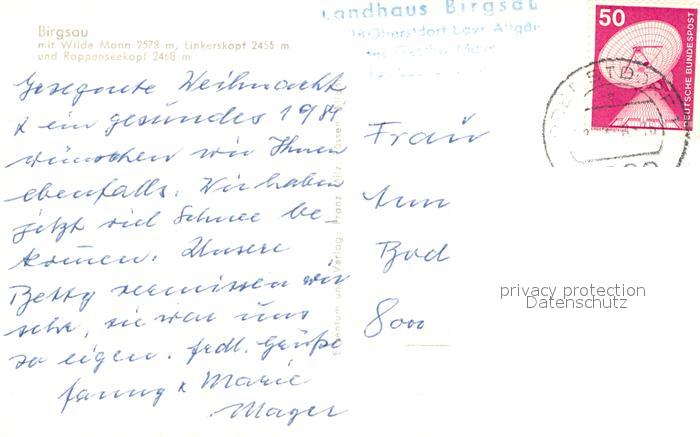 Birgsau
mit Wilde Mann 2578 m, Linkerskopf 2455 m
und Rappenseekopf 2468 m
Landhaus Birgsau
Oberstdorf Bayr. Allgäu
50
DEUTSCHE BUNDESPOST
Gesegnete Weihnacht
& ein gesundes 1984
wünschen wir Ihnen
ebenfalls. Wir haben
jetzt viel Schnee be-
kommen. Unsere
Betty vermissen wir
sehr, sie war uns
so eigen. frdl. Grüße
Fanny & Marie
Mager
Eigentum und Verlag: Franz
Frau
Bad
8000
privacy protection
Datenschutz